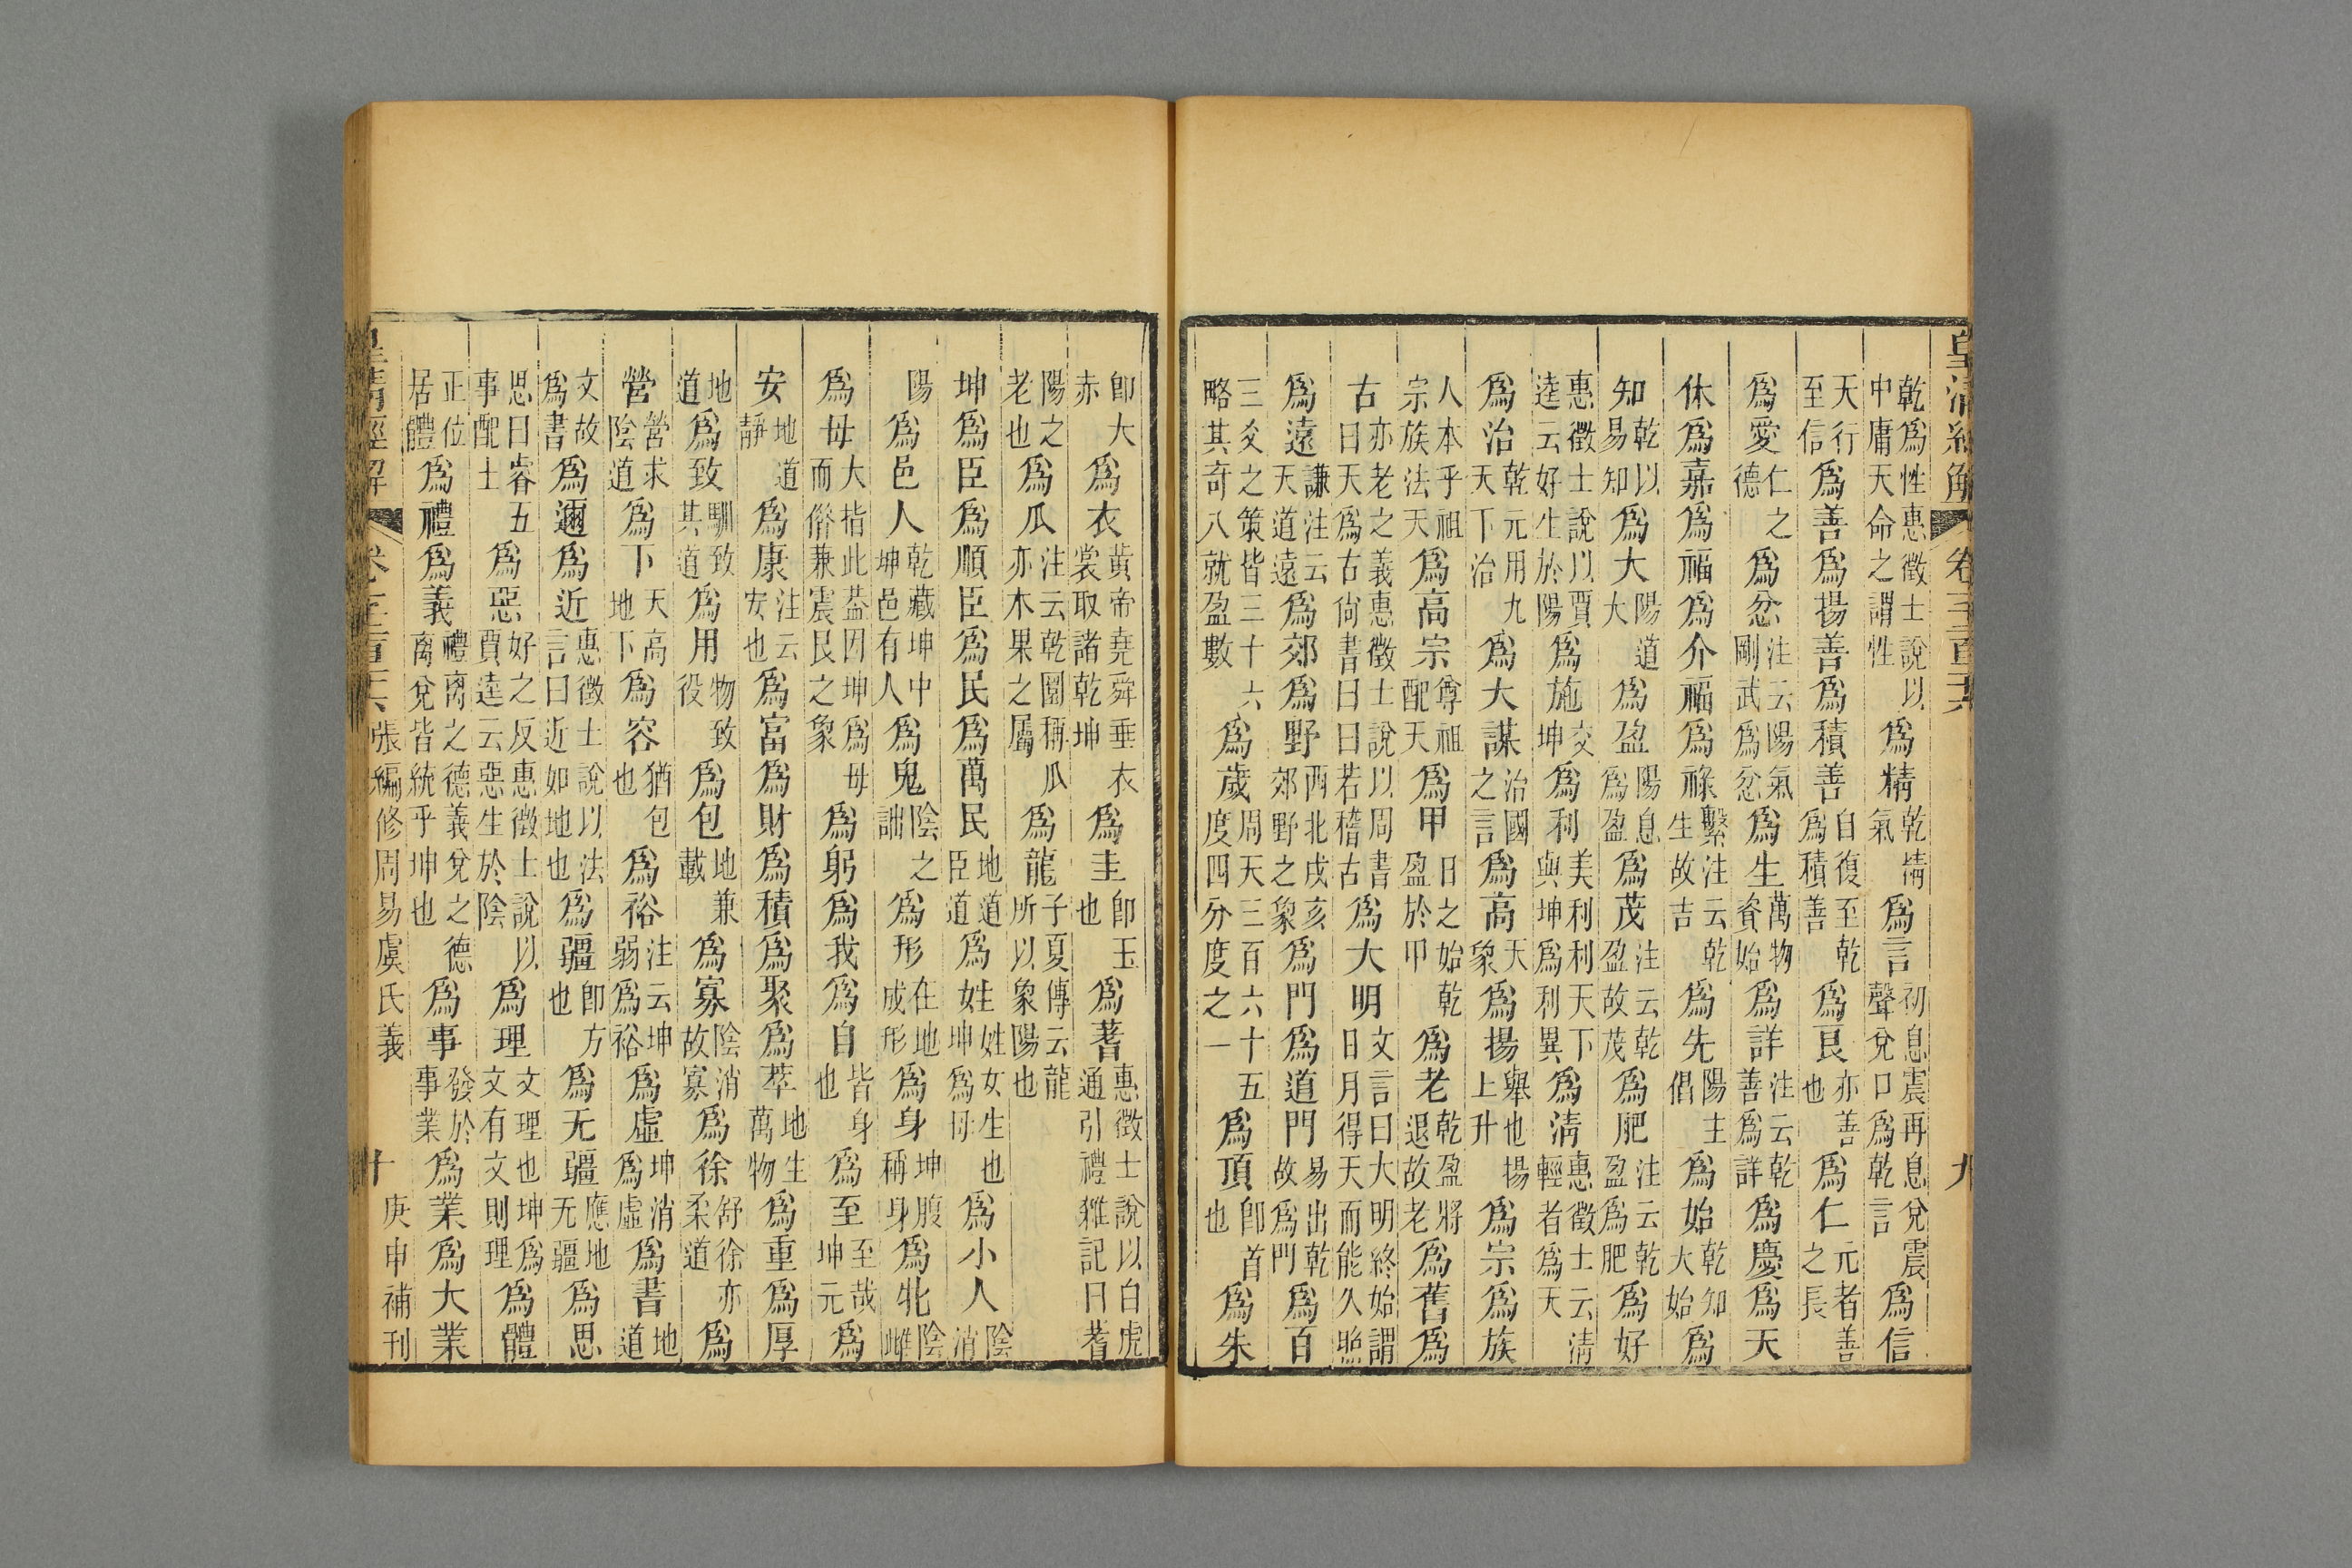 皇清經解 卷千二百二十六 九
乾爲性惠徵士說以中庸天命之謂性爲精乾精氣爲言初息震再息兌震聲兌口爲乾言爲信
天行至信爲善爲揚善爲積善自復至乾爲積善爲良亦善也爲仁元者善之長
爲愛仁之德爲忿注云陽氣剛武爲忿爲生萬物資始爲詳注云乾善爲詳爲慶爲天
休爲嘉爲福爲介福爲祿繫注云乾生故吉爲先陽主倡爲始乾知大始爲
知乾以易知爲大陽道大爲盈陽息爲盈爲茂注云乾盈故茂爲肥注云乾盈爲肥爲好
惠徵士說以賈逵云好生於陽爲施交坤爲利美利利天下與坤爲利異爲清惠徵士云清輕者爲天
爲治乾元用九天下治爲大謀治國之言爲高天象爲揚舉也揚上升爲宗爲族
人本乎祖宗族法天爲高宗尊祖配天爲甲日之始乾盈於甲爲老乾盈將退故老爲舊爲
古亦老之義惠徵士說以周書曰天爲古尚書曰曰若稽古爲大明文言曰大明終始謂日月得天而能久照
爲遠謙注云天道遠爲郊爲野西北戌亥郊野之象爲門爲道門易出乾故爲門爲百
三爻之策皆三十六略其奇八就盈數爲歲周天三百六十五度四分度之一爲頂即首也爲朱
即大赤爲衣黃帝堯舜垂衣裳取諸乾坤爲圭即玉也爲蓍惠徵士說以白虎通引禮雜記曰蓍
陽之老也爲瓜注云乾圜稱瓜亦木果之屬爲龍子夏傳云龍所以象陽也
坤爲臣爲順臣爲民爲萬民地道臣道爲姓姓女生也坤爲母爲小人陰消
陽爲邑人乾藏坤中坤邑有人爲鬼陰之詘爲形在地成形爲身坤腹稱身爲牝陰雌
爲母大指此葢因坤爲母而偹兼震艮之象爲躬爲我爲自皆身也爲至至哉坤元爲
安地道靜爲康注云安也爲富爲財爲積爲聚爲萃地生萬物爲重爲厚
地道爲致馴致其道爲用物致役爲包地兼載爲寡陰消故寡爲徐舒徐亦柔道爲
營營求陰道爲下天高地下爲容猶包也爲裕注云坤弱爲裕爲虛坤消爲虛爲書地道
文故爲書爲邇爲近惠徵士說以法言曰近如地也爲疆即方也爲无疆應地无疆爲思
思曰睿五事配土爲惡好之反惠徵士說以賈逵云惡生於陰爲理文理也坤爲文有文則理爲體
正位居體爲禮爲義禮离之德義兌之德离兌皆統乎坤也爲事發於事業爲業爲大業
皇清經解 卷千二百二十六 張編修周易虞氏義 十 庚申補刊